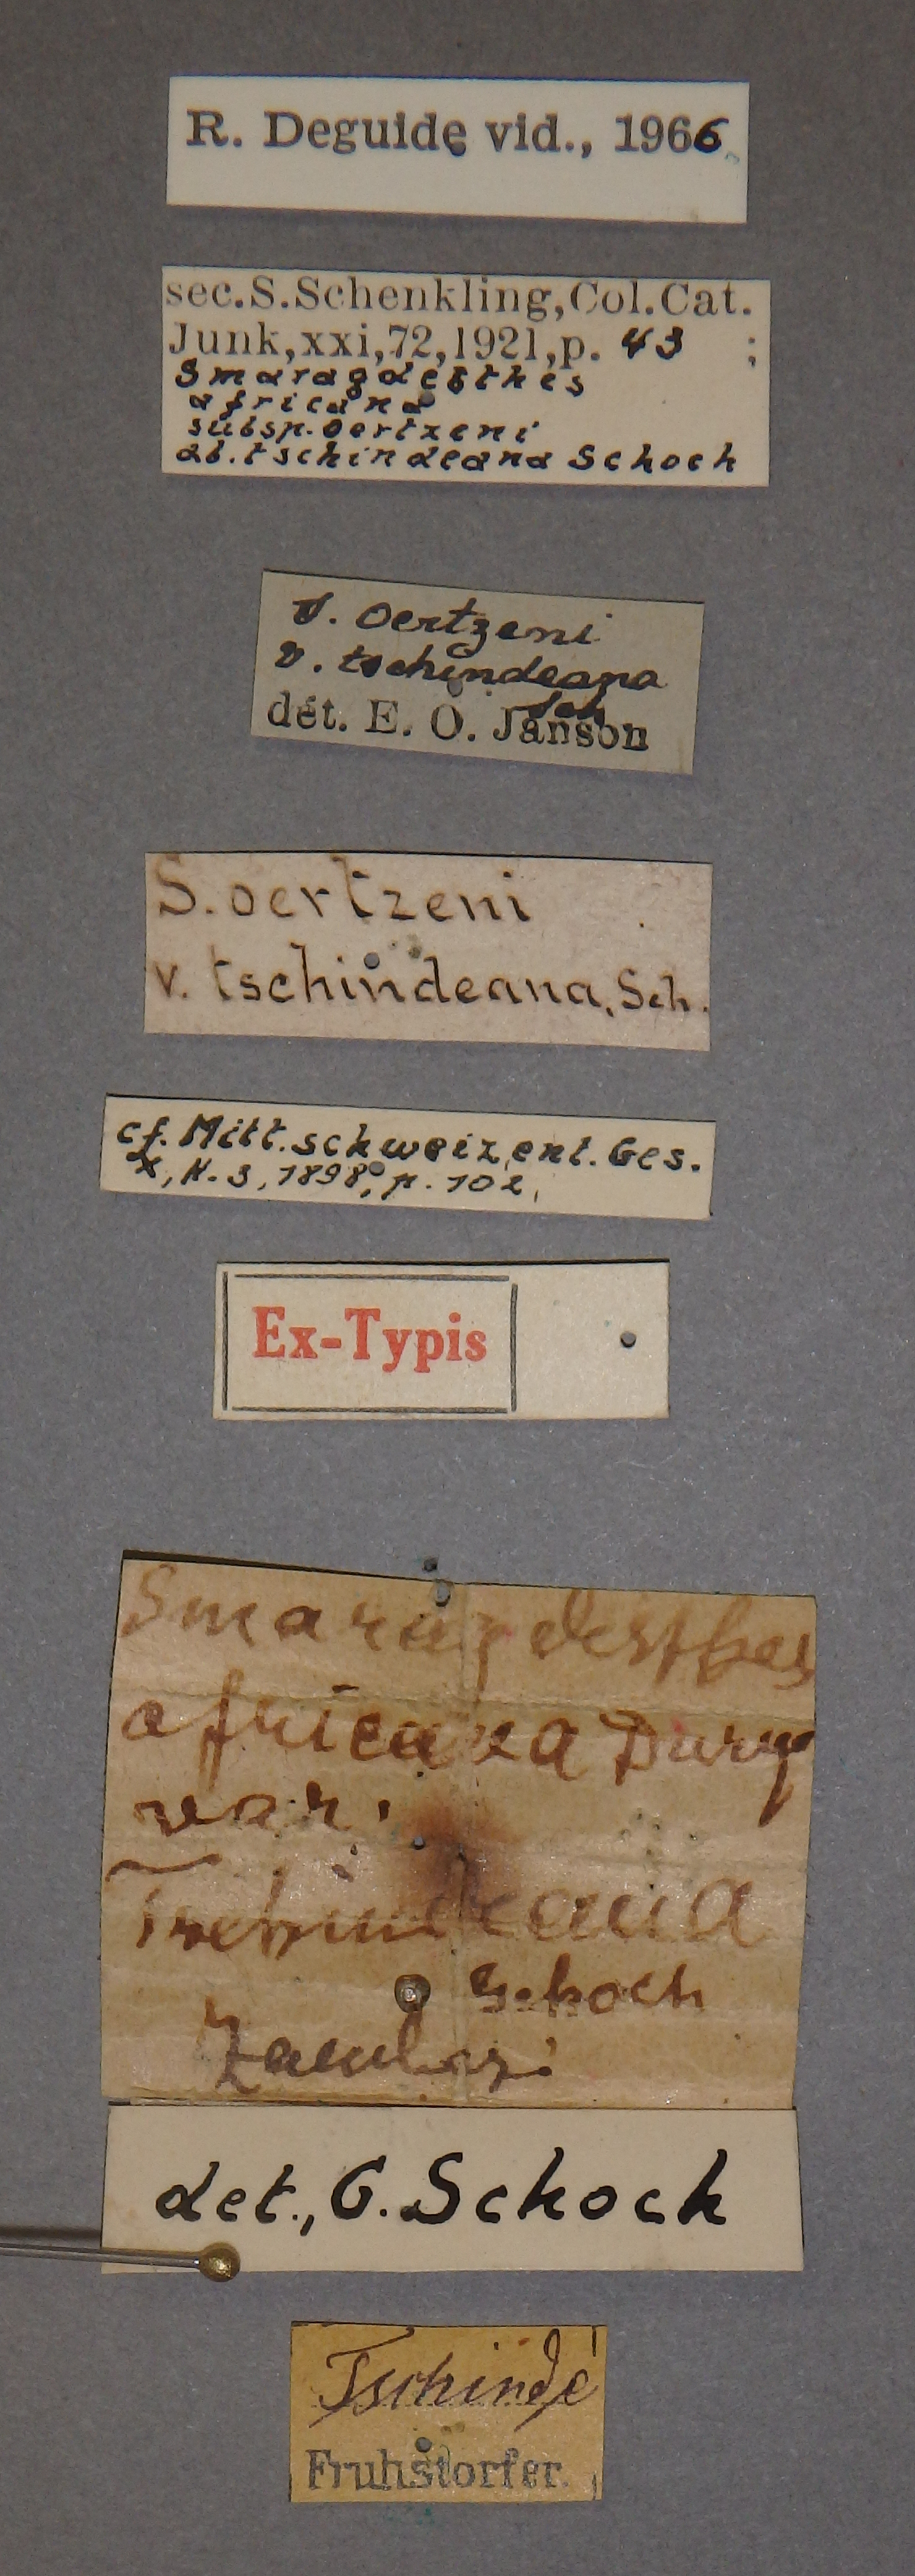 R. Deguide vid., 1966
sec.S.Schenkling,Col.Cat.
Junk,xxi,72,1921,p. 43 ;
Smaragdesthes
africana
subsp. oertzeni
ab. tschindeana Schoch
S. oertzeni
v. tschindeana
Sch
dét. E. O. Janson
S. oertzeni
v. tschindeana, Sch.
cf. Mitt. schweiz. ent. Ges.
X, H. 3, 1898, p. 102,
Ex-Typis
Smaragdesthes
africana Drury
var.
Tschindeana
Schoch
Zambesi
det., G. Schoch
Tschinde
Fruhstorfer.